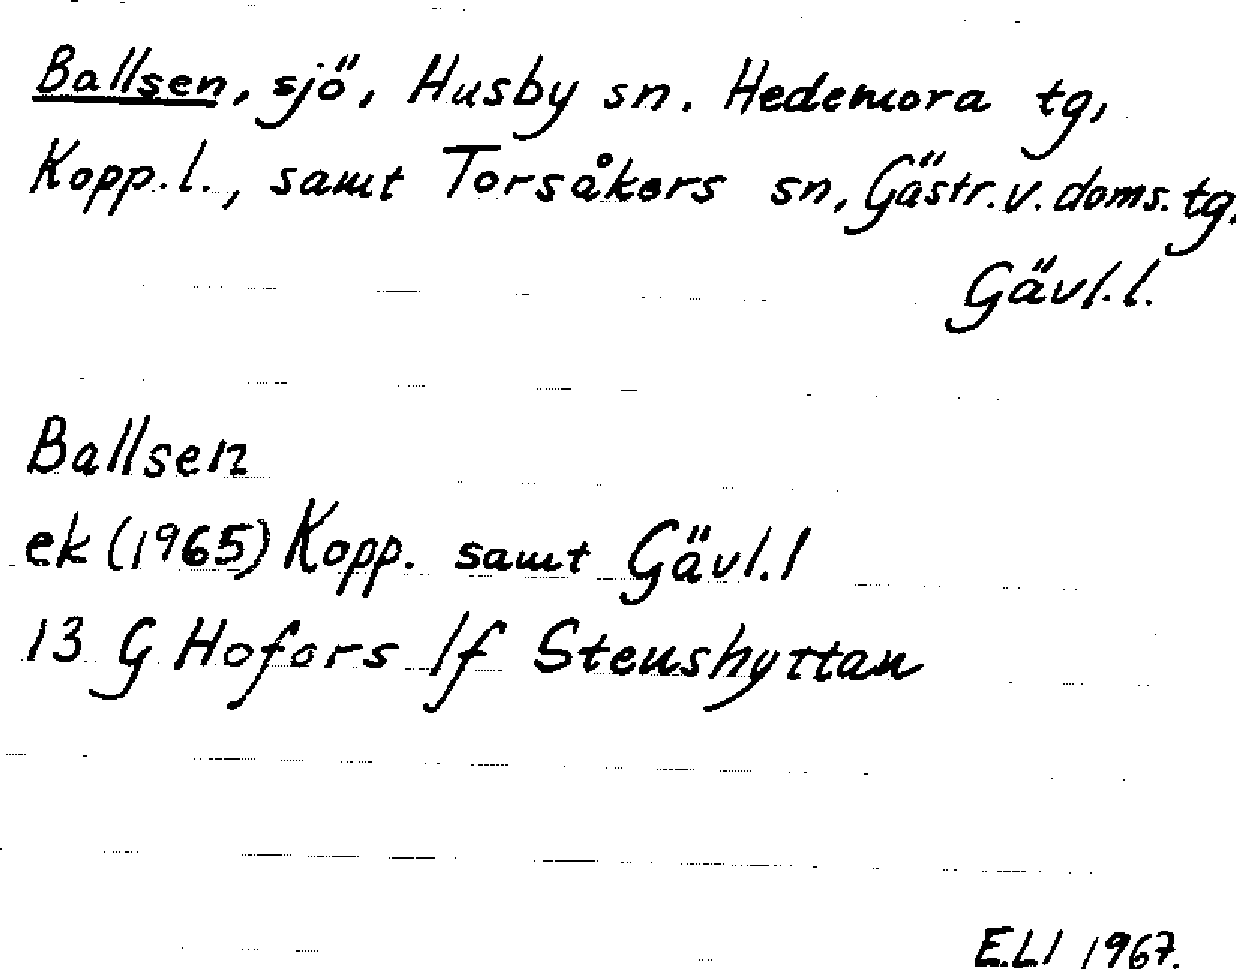 Ballsen, sjö, Husby sn. Hedemora tg,
Kopp.l., samt Torsåkers sn, Gästr.v.doms.tg.
Gävl.l.
Ballsen
ek (1965) Kopp. samt Gävl.l
13 G Hofors /f Stenshyttan
E.LI 1967.